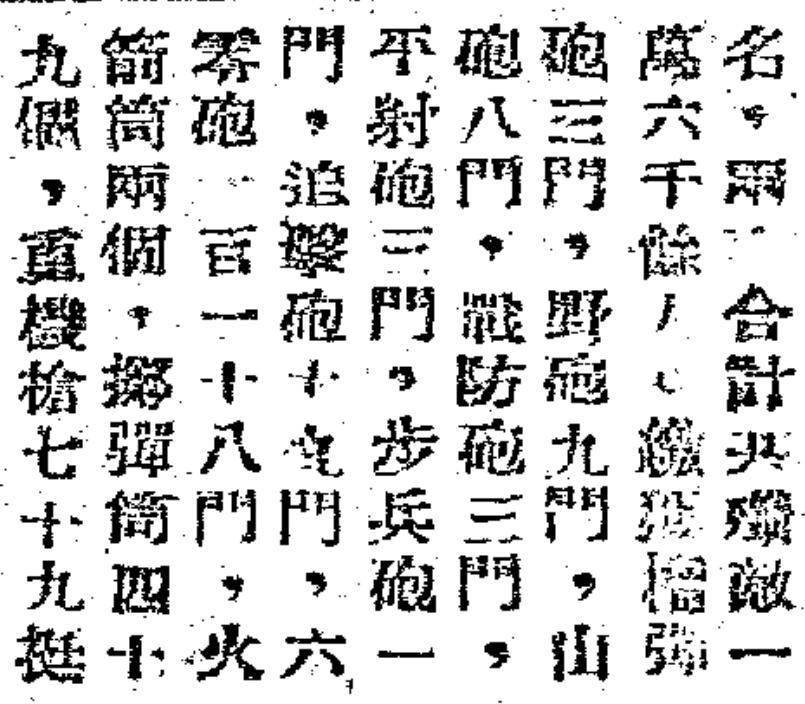 名，兩合計共殲敵一
萬六千餘人。繳獲榴彈
砲三門，野砲九門，山
砲八門，戰防砲三門，
平射砲三門，步兵砲一
門，追擊砲十門，六
零砲二百一十八門，火
箭筒兩個，擲彈筒四十
九個，重機槍七十九挺